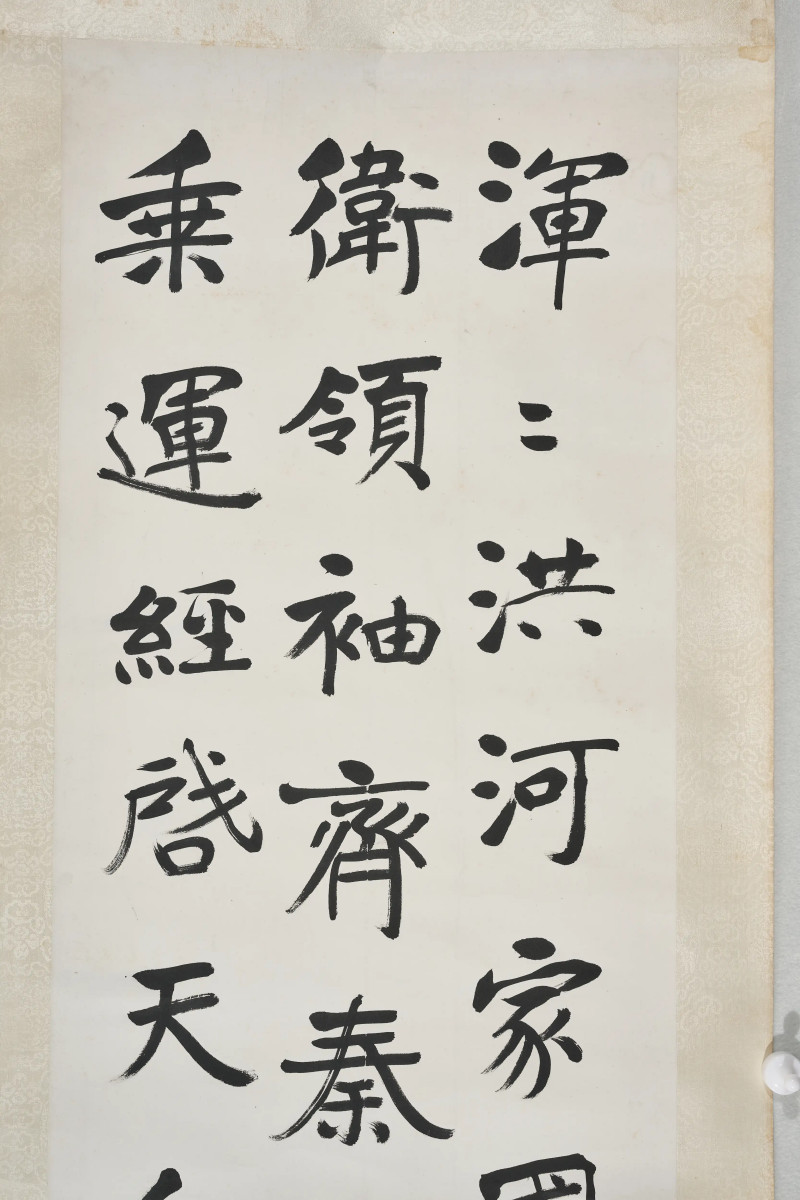 渾〻洪河家
衛領袖齊秦
乗運經啓天